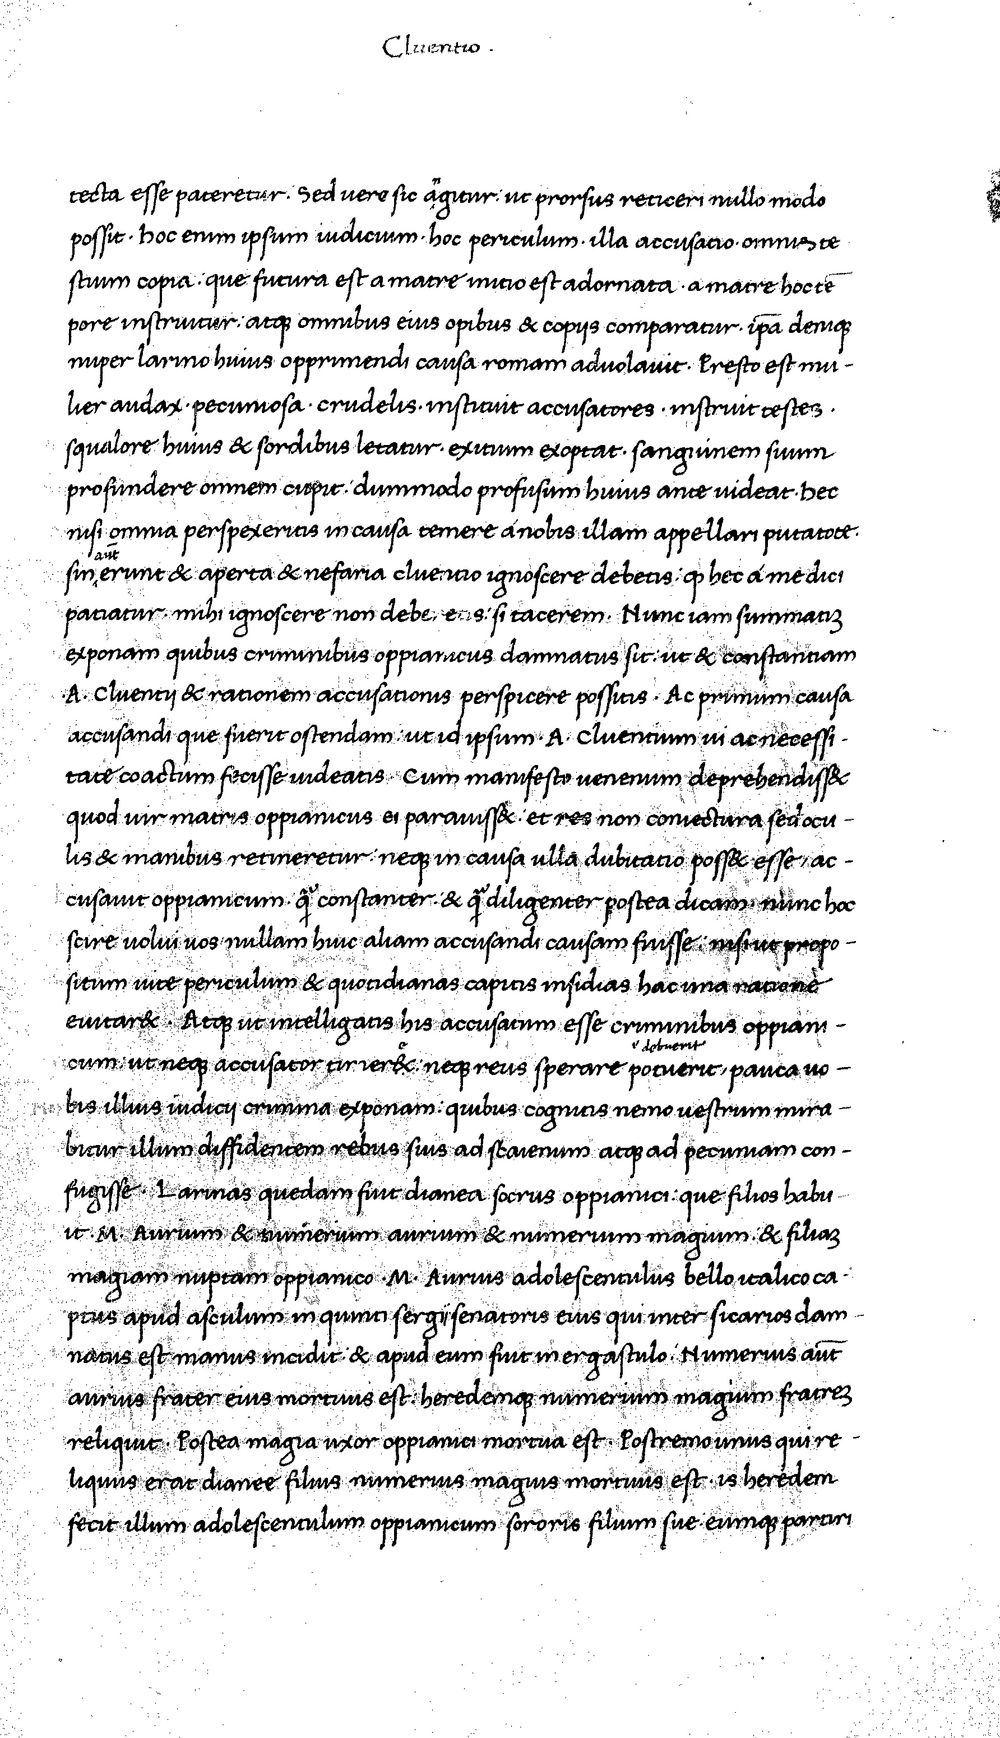 Cluentio .
tecta esse pateretur . Sed vere sic agitur : ut prorsus reticeri nullo modo
possit . hoc enim ipsum iudicium . hoc periculum . illa accusatio . omnis te
stium copia . que futura est a matre initio est adornata . a matre hoc tē
pore instruitur : atqȝ omnibus eius opibus & copijs comparatur . ip̄a deniqȝ
nuper larino huius opprimendi causa romam aduolauit . Presto est mu -
lier audax . pecuniosa . crudelis . instituit accusatores . instruit testes .
squalore huius & sordibus letatur . exitium exoptat . sanguinem suum
profundere omnem cupit : dummodo profusum huius ante uideat . hec
nisi omnia perspexeritis in causa temere a nobis illam appellari putatote .
aūt
sin erunt & aperta & nefaria cluentio ignoscere debetis : ꝙ hec a me dici
patiatur . mihi ignoscere non debe etis : si tacerem . Nunc iam summatiȝ
exponam quibus criminibus oppianicus damnatus sit : ut & constantiam
A . Cluentij & rationem accusationis perspicere possitis . Ac primum causa
accusandi que fuerit ostendam : ut id ipsum . A . Cluentium ui ac necessi -
tate coactum fecisse uideatis . Cum manifesto uenenum deprehendiss&
quod uir matris oppianicus ei parauiss& : et res non coniectura sed ocu -
lis & manibus retineretur : neqȝ in causa ulla dubitatio poss& esse / ac -
cusauit oppianicum . q̃ constanter . & q̃ diligenter postea dicam . nunc hoc
scire uolui uos nullam huic aliam accusandi causam fuisse : nisi ut propo -
situm uite periculum & quotidianas capitis insidias hac una ratione
euitar& . Atqȝ ut intelligatis his accusatum esse criminibus oppiani -
ł debuerit
cum : ut neqȝ accusator timer& : neqȝ reus sperare potuerit / pauca uo -
bis illius iudicij crimina exponam : quibus cognitis nemo uestrum mira -
bitur illum diffidentem rebus suis ad staienum atqȝ ad pecuniam con -
fugisse . Larinas quedam fuit dianea socrus oppianici : que filios habu -
it . M . Aurium & numerium aurium & numerium magium . & filiaȝ
magiam nuptam oppianico . M . Aurius adolescentulus bello italico ca -
ptus apud asculum in quinti sergij senatoris eius qui inter sicarios dam -
natus est manus incidit . & apud eum fuit in ergastulo . Numerius aūt
aurius frater eius mortuus est . heredemqȝ numerium magium fratreȝ
reliquit . Postea magia uxor oppianici mortua est . Postremo unus qui re -
liquus erat dianee filius numerius magius mortuus est . is heredem
fecit illum adolescentulum oppianicum sororis filium sue . eumqȝ partiri